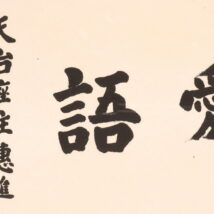 愛語
天台座主惠進